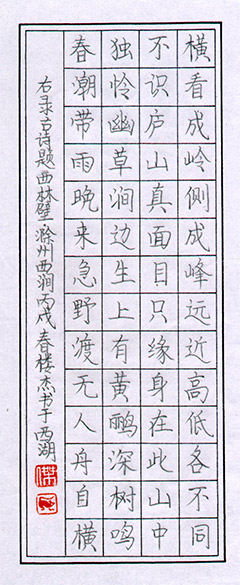 横看成岭侧成峰远近高低各不同
不识庐山真面目只缘身在此山中
独怜幽草涧边生上有黄鹂深树鸣
春潮带雨晚来急野渡无人舟自横
右录古诗题西林壁滁州西涧丙戌春楼杰书于西湖